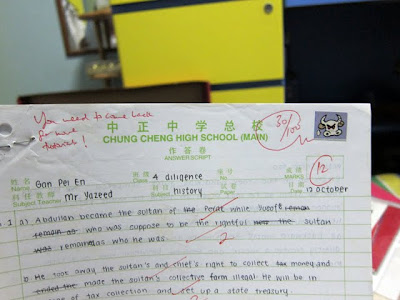 You need to come back
for more
tutorials!
30/100
中正中学总校
CHUNG CHENG HIGH SCHOOL (MAIN)
作答卷
ANSWER SCRIPT
12
姓名 Name Gan Pei En 班级 Class 4 diligence 积分 Marks
科任老师 Subject Teacher Mr Yazeed 科目 Subject history 试卷 Paper 日期 Date 17 October
1 a) Abdullah became the sultan of the Perat while Yusof
who was suppose to be the rightful the sultan
was remained as who he was.
2
b. He took away the sultan's and chief's right to collect tax money and
ended the made the sultan's collective farm illegal. He will be in
of tax collection and set up a state treasury.